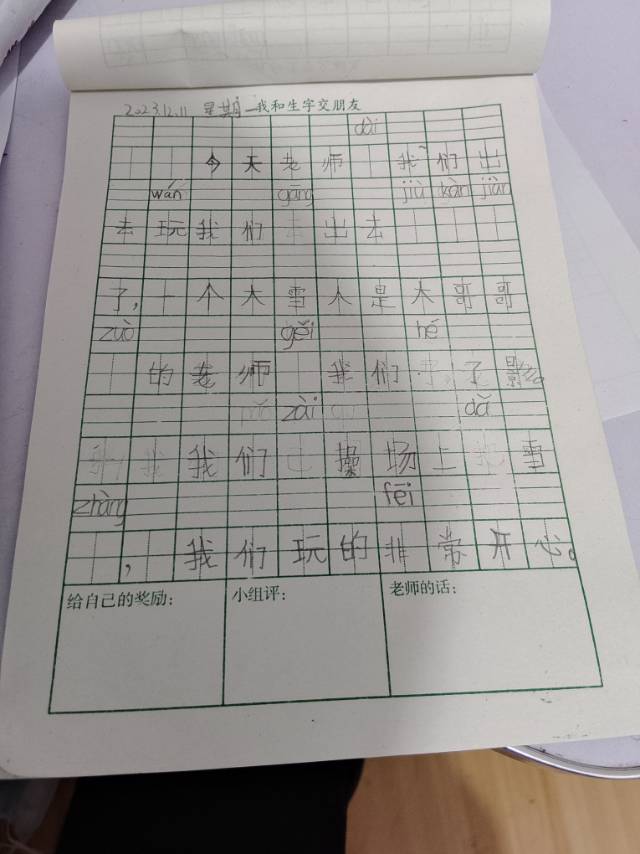 2023.12.11 星期一我和生字交朋友
dài
今天老师我们出
wán gāng jiù kàn jiàn
去玩我们出去
了,一个大雪人是大哥哥
zuò gěi hé
的老师我们了影。
zài dǎ
我们操场上雪
zhàng fēi
,我们玩的非常开心。
给自己的奖励: 小组评: 老师的话: